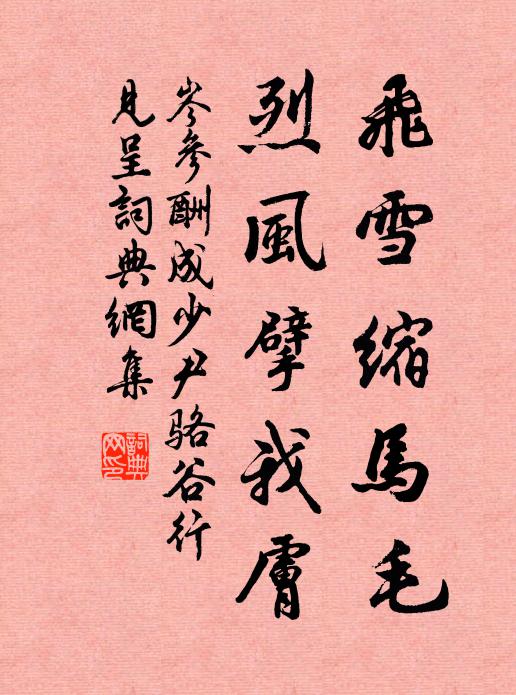 飛雪縮馬毛
烈風擘我膚
岑參酬成少尹駱谷行
見呈詞典網集
詞典
网印